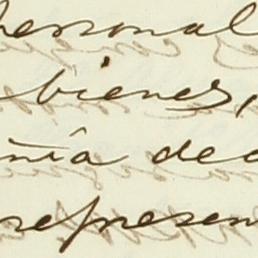 personal
bienes,
nia de
represen